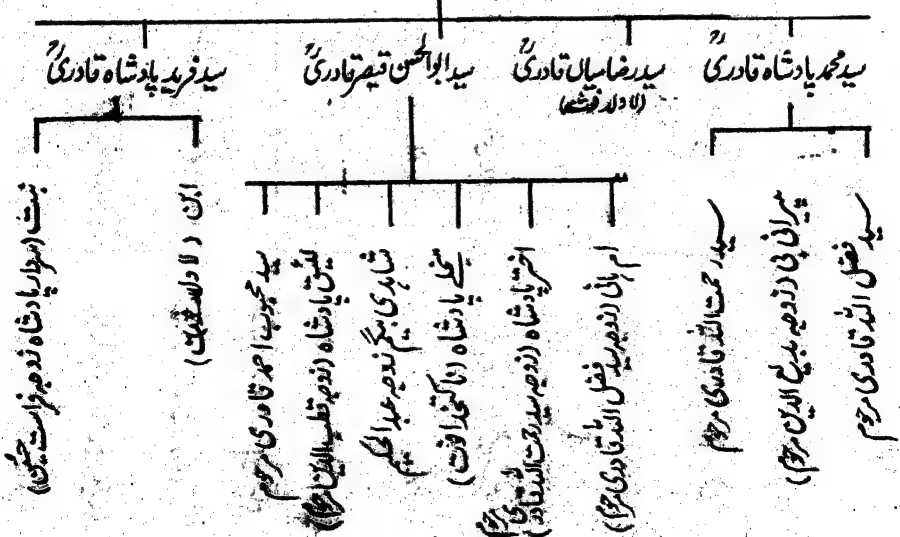 سید محمد پادشاہ قادریؒ
سید رضا میاں قادریؒ
(لا ولد فوت)
سید ابوالحسن قیصر قادریؒ
سید فرید پادشاہ قادریؒ
سید فضل اللہ قادری مرحوم
میرانی بی (زوجہ بدیع الدین مرحوم)
سید رحمت اللہ قادری مرحوم
ام ہانی (زوجہ سید فضل اللہ قادری مرحوم)
اختر پادشاہ (زوجہ سید رحمت اللہ قادری مرحوم)
منجلے پادشاہ (ناکتخدا فوت)
شاہدی بیگم زوجہ عبدالحکیم
لئیق پادشاہ (زوجہ قطب الدین مرحوم)
سید محبوب احمد قادری مرحوم
ابن (لا ولد فوت)
بنت (سردار پادشاہ زوجہ فراست حسین)